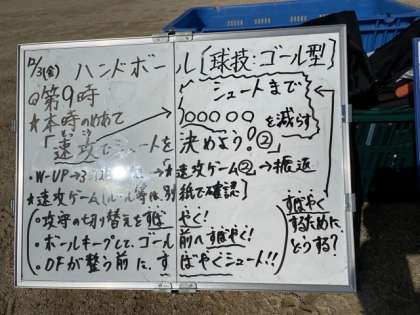 12/3(金) ハンドボール〔球技:ゴール型〕
◎第9時
シュートまで
○○○○○を減らす
★本時のめあて
「速攻でシュートを決めよう!②」
そっこう
・W-UP→
→★速攻ゲーム②→振返
★速攻ゲーム〔ルール等は、別紙で確認〕
・攻守の切り替えをすばやく!
・ボールキープして、ゴール前へすばやく!
・DFが整う前に、すばやくシュート!!
すばやく
するために、
どうする?